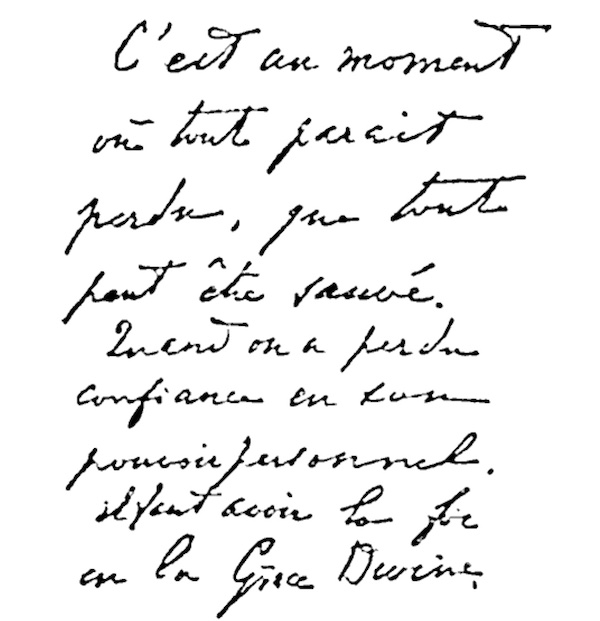 C'est au moment
où tout parait
perdu, que tout
peut être sauvé.
Quand on a perdu
confiance en son
pouvoir personnel.
il faut avoir la foi
en la Grâce Divine.